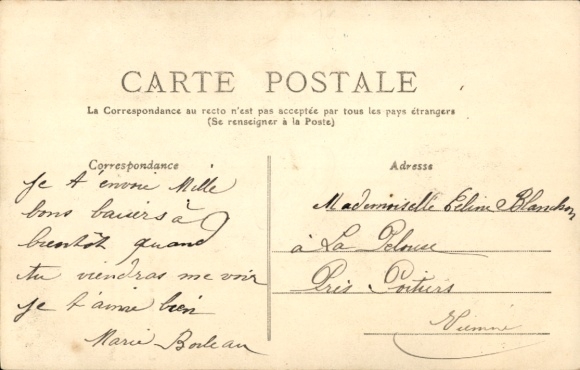 CARTE POSTALE
La Correspondance au recto n'est pas acceptée par tous les pays étrangers
(Se renseigner à la Poste)
Correspondance
Je t'envoie Mille
bons baisers à
bientôt quand
tu viendras me voir
je t'aime bien
Marie Boileau
Adresse
Mademoiselle Celine Blanchon
à La Pelouse
Près Poitiers
Vienne